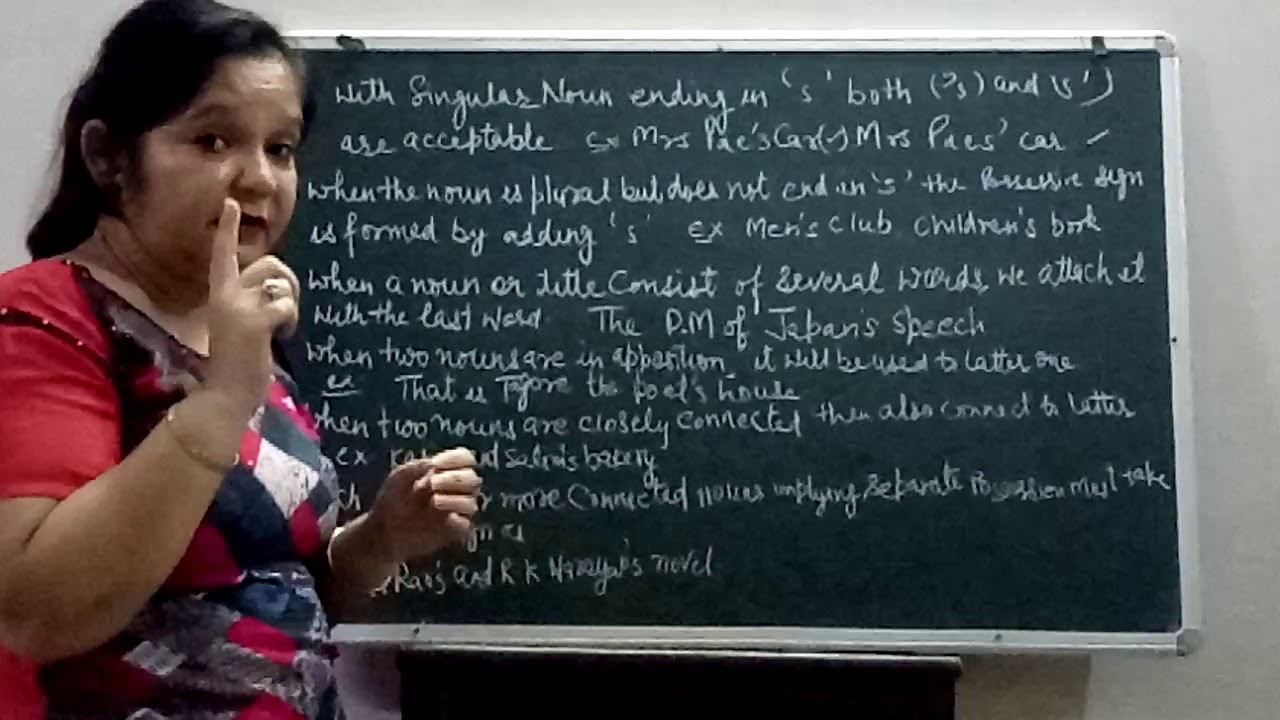 With Singular Noun ending in 's' both ('s) and (s')
are acceptable ex Mrs Pae's Car(✓) Mrs Paes' car ✓
When the noun is plural but does not end in 's' the Possessive sign
is formed by adding 's' ex Men's Club Children's book
When a noun or title Consist of Several words, we attach it
with the last word. The P.M of Japan's Speech
When two nouns are in apposition it will be used to latter one
ex That is Tagore the Poet's house
when two nouns are closely Connected then also connect to latter
ex and Salim's bakery
more Connected nouns implying Separate Possession must take
Rao's and R K Narayan's novel